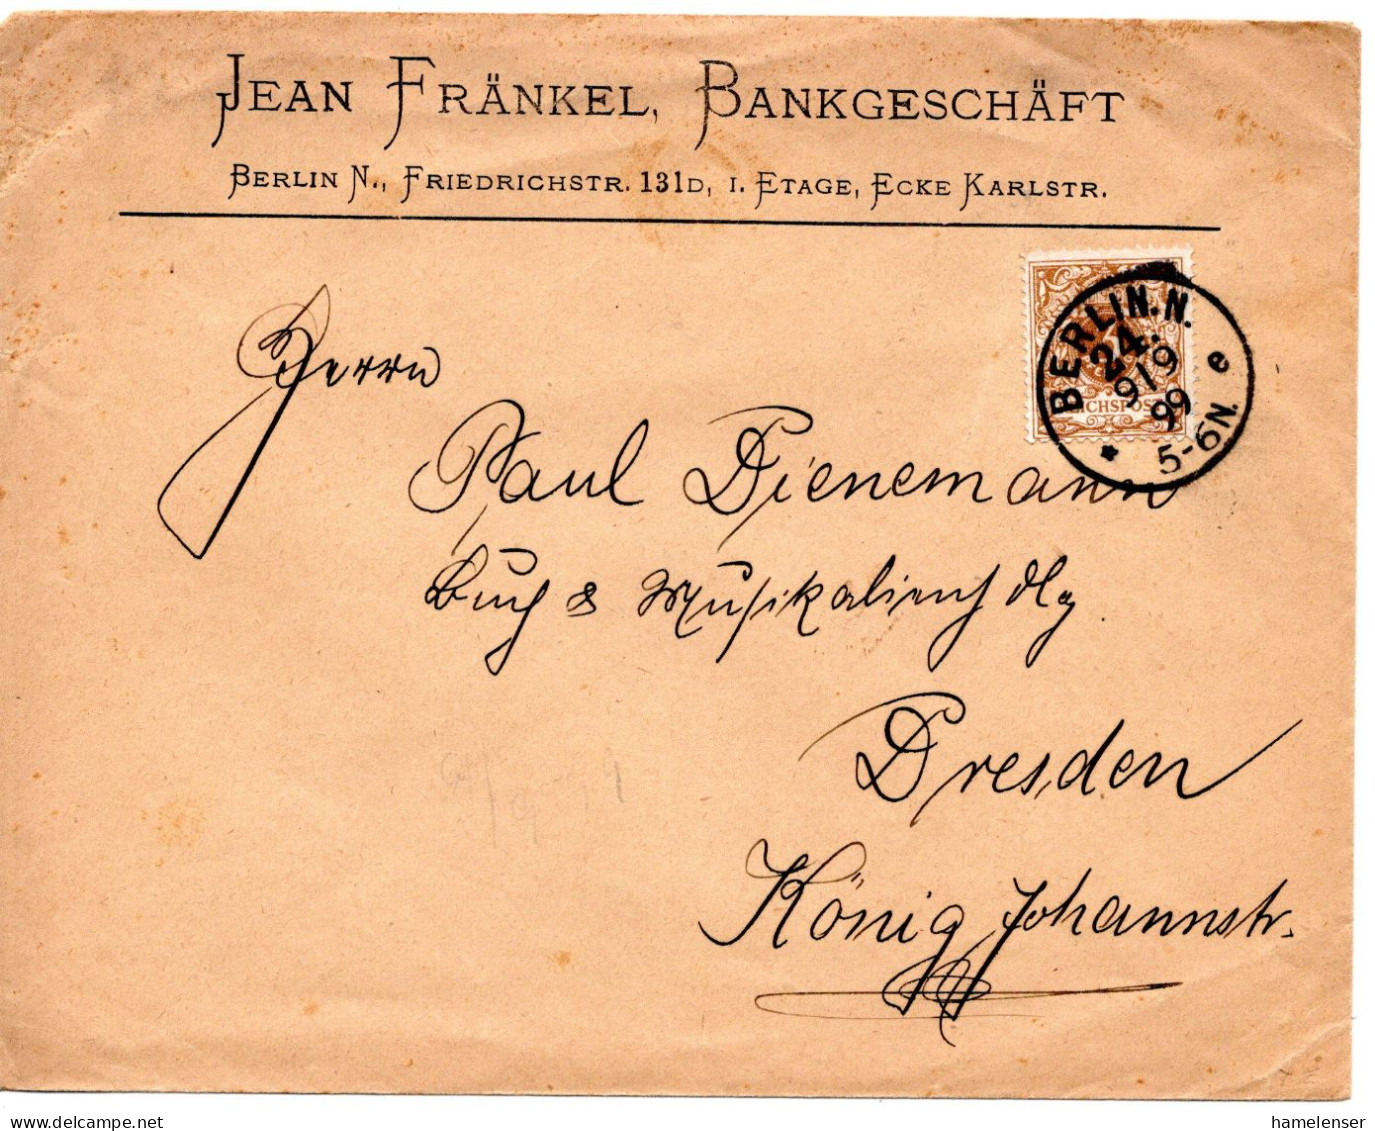 JEAN FRÄNKEL, BANKGESCHÄFT
BERLIN N., FRIEDRICHSTR. 131D, I. ETAGE, ECKE KARLSTR.
BERLIN.N.
24.
9 19
99
e
* 5-6N.
REICHSPOST
Herrn
Paul Dienemann
Buch & Musikalienhdlg
Dresden
König Johannstr.
delcampe.net
hamelenser